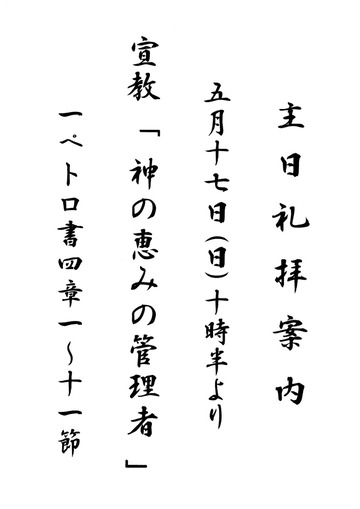 主日礼拝案内
五月十七日(日)十時半より
宣教「神の恵みの管理者」
一ペトロ書四章一~十一節